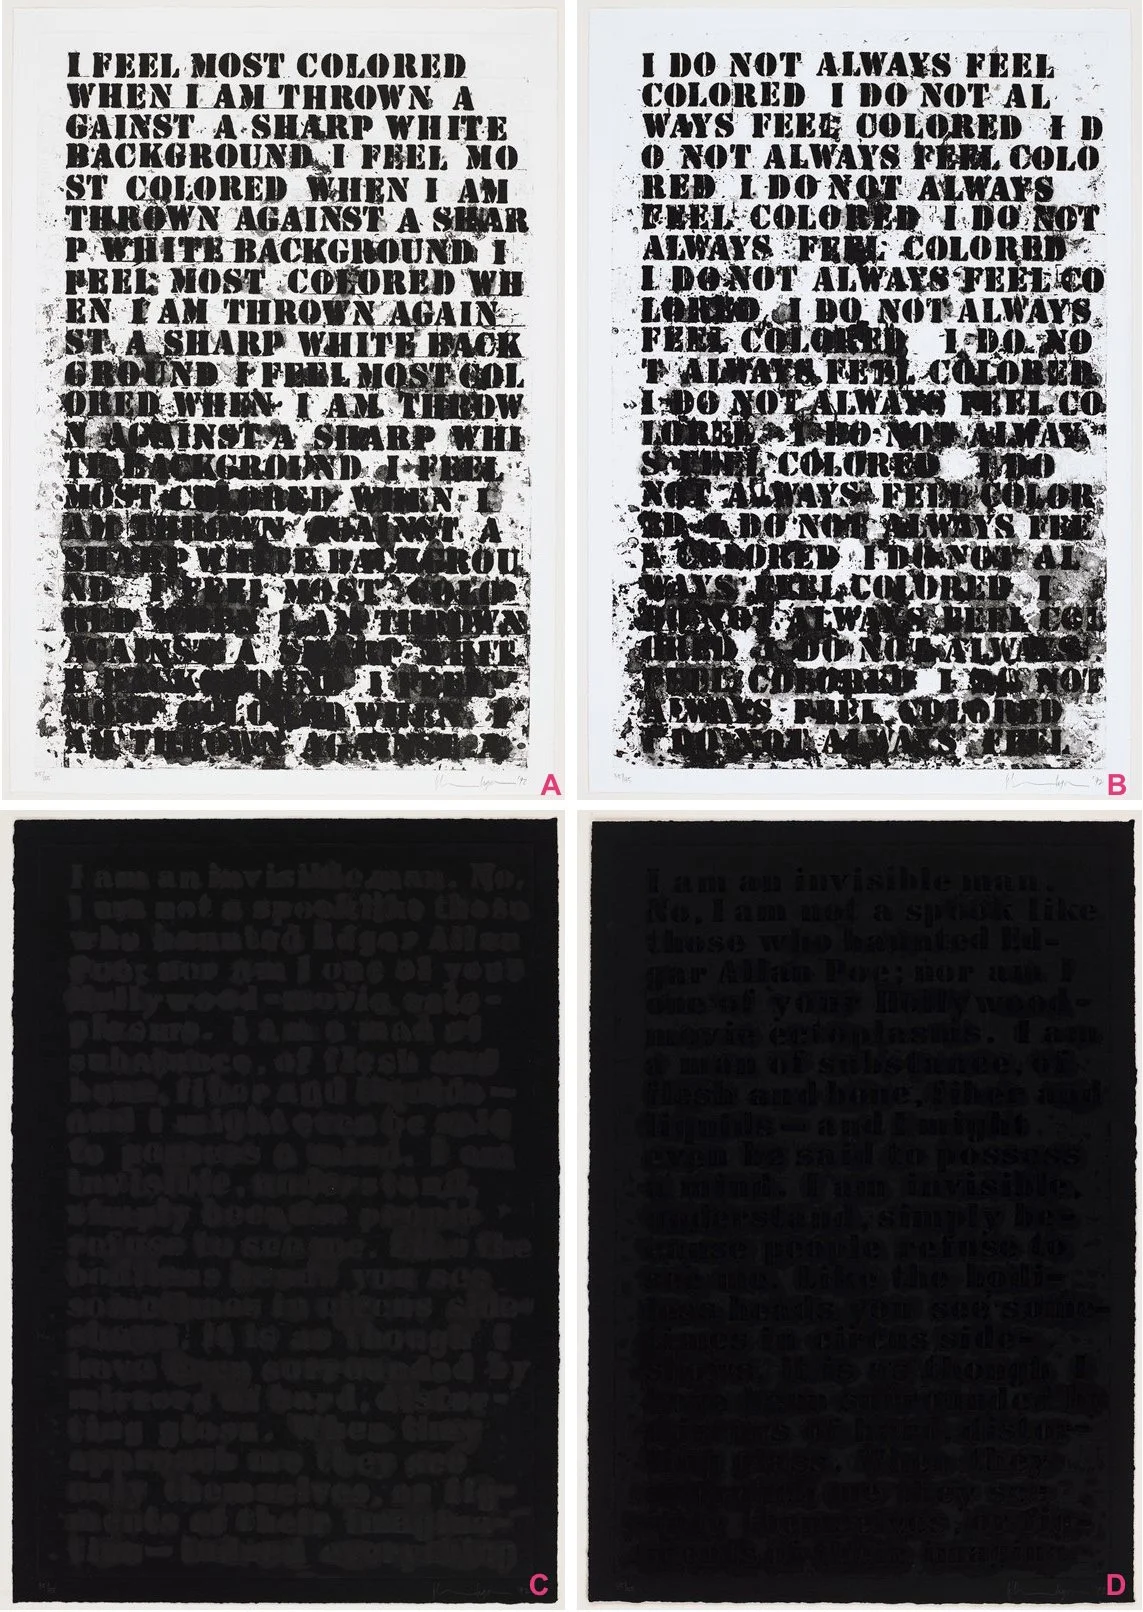 I FEEL MOST COLORED
WHEN I AM THROWN A
GAINST A SHARP WHITE
BACKGROUND I FEEL MO
ST COLORED WHEN I AM
THROWN AGAINST A SHAR
P WHITE BACKGROUND I
FEEL MOST COLORED WH
EN I AM THROWN AGAIN
ST A SHARP WHITE BACK
GROUND I FEEL MOST COL
ORED WHEN I AM THROW
N AGAINST A SHARP WHI
TE BACKGROUND I FEEL
MOST COLORED WHEN I
AM THROWN AGAINST A
SHARP WHITE BACKGROU
ND I FEEL MOST COLO
RED WHEN I AM THROWN
AGAINST A SHARP WHITE
BACKGROUND I FEEL
MOST COLORED WHEN I
AM THROWN AGAINST
A
I DO NOT ALWAYS FEEL
COLORED I DO NOT AL
WAYS FEEL COLORED I D
O NOT ALWAYS FEEL COLO
RED I DO NOT ALWAYS
FEEL COLORED I DO NOT
ALWAYS FEEL COLORED
I DO NOT ALWAYS FEEL CO
LORED I DO NOT ALWAYS
FEEL COLORED I DO NO
T ALWAYS FEEL COLORED
I DO NOT ALWAYS FEEL CO
LORED I DO NOT ALWAY
S FEEL COLORED I DO
NOT ALWAYS FEEL COLOR
ED I DO NOT ALWAYS FEE
L COLORED I DO NOT AL
WAYS FEEL COLORED I
DO NOT ALWAYS FEEL COL
ORED I DO NOT ALWAYS
FEEL COLORED I DO NOT
ALWAYS FEEL COLORED
I DO NOT ALWAYS FEEL
B
I am an invisible man. No,
I am not a spook like those
who haunted Edgar Allan
Poe; nor am I one of your
Hollywood-movie ecto-
plasms. I am a man of
substance, of flesh and
bone, fiber and liquids—
and I might even be said
to possess a mind. I am
invisible, understand,
simply because people
refuse to see me. Like the
bodiless heads you see
sometimes in circus side-
shows, it is as though I
have been surrounded by
mirrors of hard, distor-
ting glass. When they
approach me they see
only themselves,
C
I am an invisible man.
No, I am not a spook like
those who haunted Ed-
gar Allan Poe; nor am I
one of your Hollywood-
movie ectoplasms. I am
a man of substance, of
flesh and bone, fiber and
liquids—and I might
even be said to possess
a mind. I am invisible,
understand, simply be-
cause people refuse to
see me. Like the bodi-
less heads you see some-
times in circus side-
shows, it is as though I
have been surrounded by
mirrors of hard, distor-
ting glass. When they
approach me they see
only themselves,
D